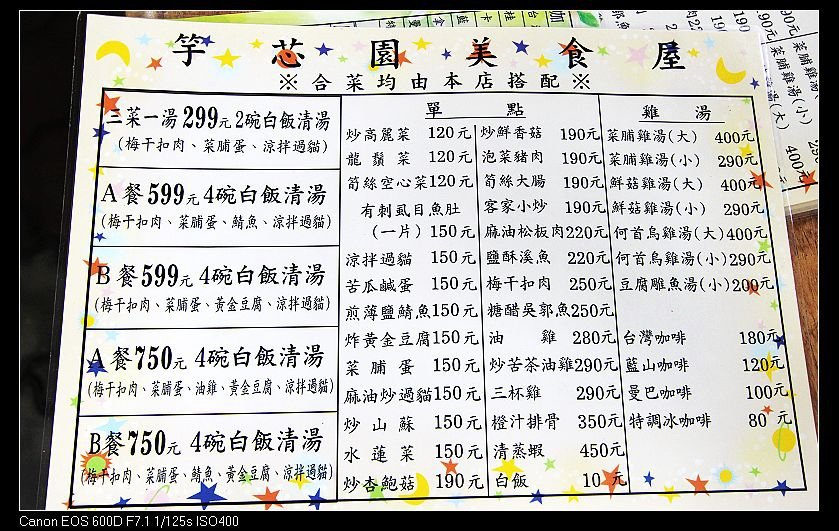 芋芯園美食屋
※合菜均由本店搭配※
三菜一湯299元2碗白飯清湯
(梅干扣肉、菜脯蛋、涼拌過貓)
A餐599元 4碗白飯清湯
(梅干扣肉、菜脯蛋、鯖魚、涼拌過貓)
B餐599元 4碗白飯清湯
(梅干扣肉、菜脯蛋、黃金豆腐、涼拌過貓)
A餐750元 4碗白飯清湯
(梅干扣肉、菜脯蛋、油雞、黃金豆腐、涼拌過貓)
B餐750元 4碗白飯清湯
(梅干扣肉、菜脯蛋、鯖魚、黃金豆腐、涼拌過貓)
單點
炒高麗菜 120元
龍鬚菜 120元
筍絲空心菜120元
有刺虱目魚肚
(一片) 150元
涼拌過貓 150元
苦瓜鹹蛋 150元
煎薄鹽鯖魚150元
炸黃金豆腐150元
菜脯蛋 150元
麻油炒過貓150元
炒山蘇 150元
水蓮菜 150元
炒杏鮑菇 190元
炒鮮香菇 190元
泡菜豬肉 190元
筍絲大腸 190元
客家小炒 190元
麻油松板肉220元
鹽酥溪魚 220元
梅干扣肉 250元
糖醋吳郭魚250元
油雞 280元
炒苦茶油雞290元
三杯雞 290元
橙汁排骨 350元
清蒸蝦 450元
白飯 10元
雞湯
菜脯雞湯(大) 400元
菜脯雞湯(小) 290元
鮮菇雞湯(大) 400元
鮮菇雞湯(小) 290元
何首烏雞湯(大)400元
何首烏雞湯(小)290元
豆腐雕魚湯(小)200元
台灣咖啡 180元
藍山咖啡 120元
曼巴咖啡 100元
特調冰咖啡 80元
菜脯雞湯(大)
菜脯雞湯(小)
400元
290元
Canon EOS 600D F7.1 1/125s ISO400